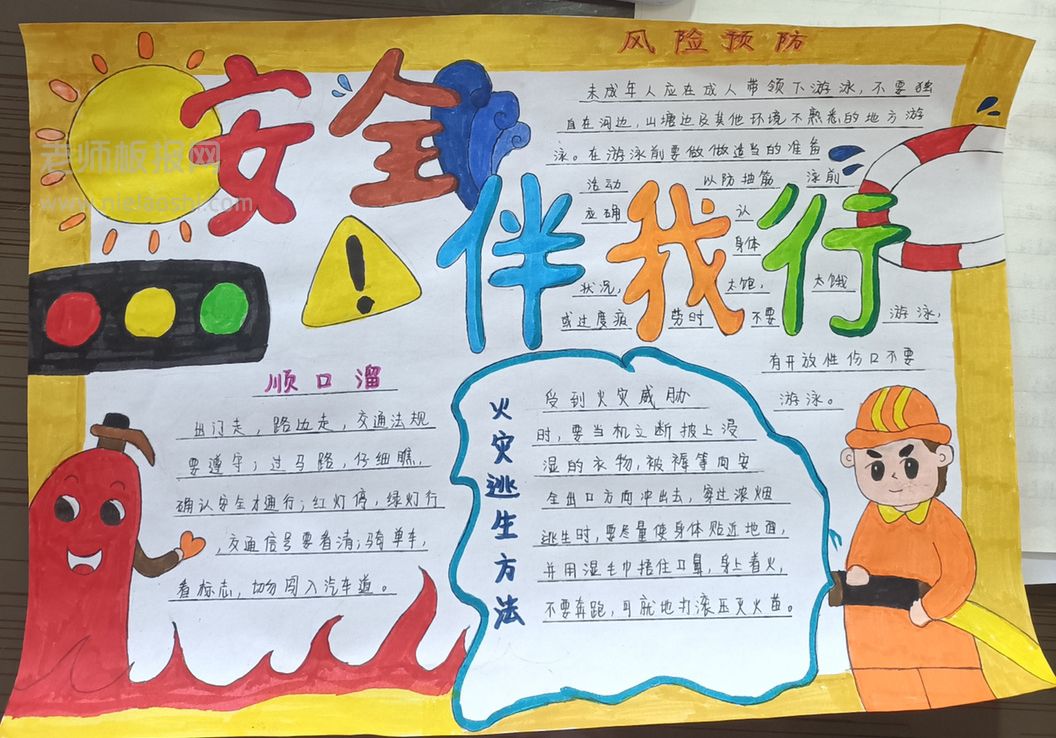 安全
伴我行
风险预防
未成年人应在成人带领下游泳,不要独
自在河边,山塘边及其他环境不熟悉的地方游
泳。在游泳前要做做适当的准备
活动 以防抽筋 泳前
应确 认
身体
状况, 太饱, 太饿
或过度疲 劳时 不要 游泳,
有开放性伤口不要
游泳。
顺口溜
出门走,路边走,交通法规
要遵守;过马路,仔细瞧,
确认安全才通行;红灯停,绿灯行
,交通信号要看清;骑单车,
看标志,切勿闯入汽车道。
火灾逃生方法
受到火灾威胁
时,要当机立断披上浸
湿的衣物,被褥等向安
全出口方向冲出去,穿过浓烟
逃生时,要尽量使身体贴近地面,
并用湿毛巾捂住口鼻,身上着火,
不要奔跑,可就地打滚压灭火苗。
老师板报网